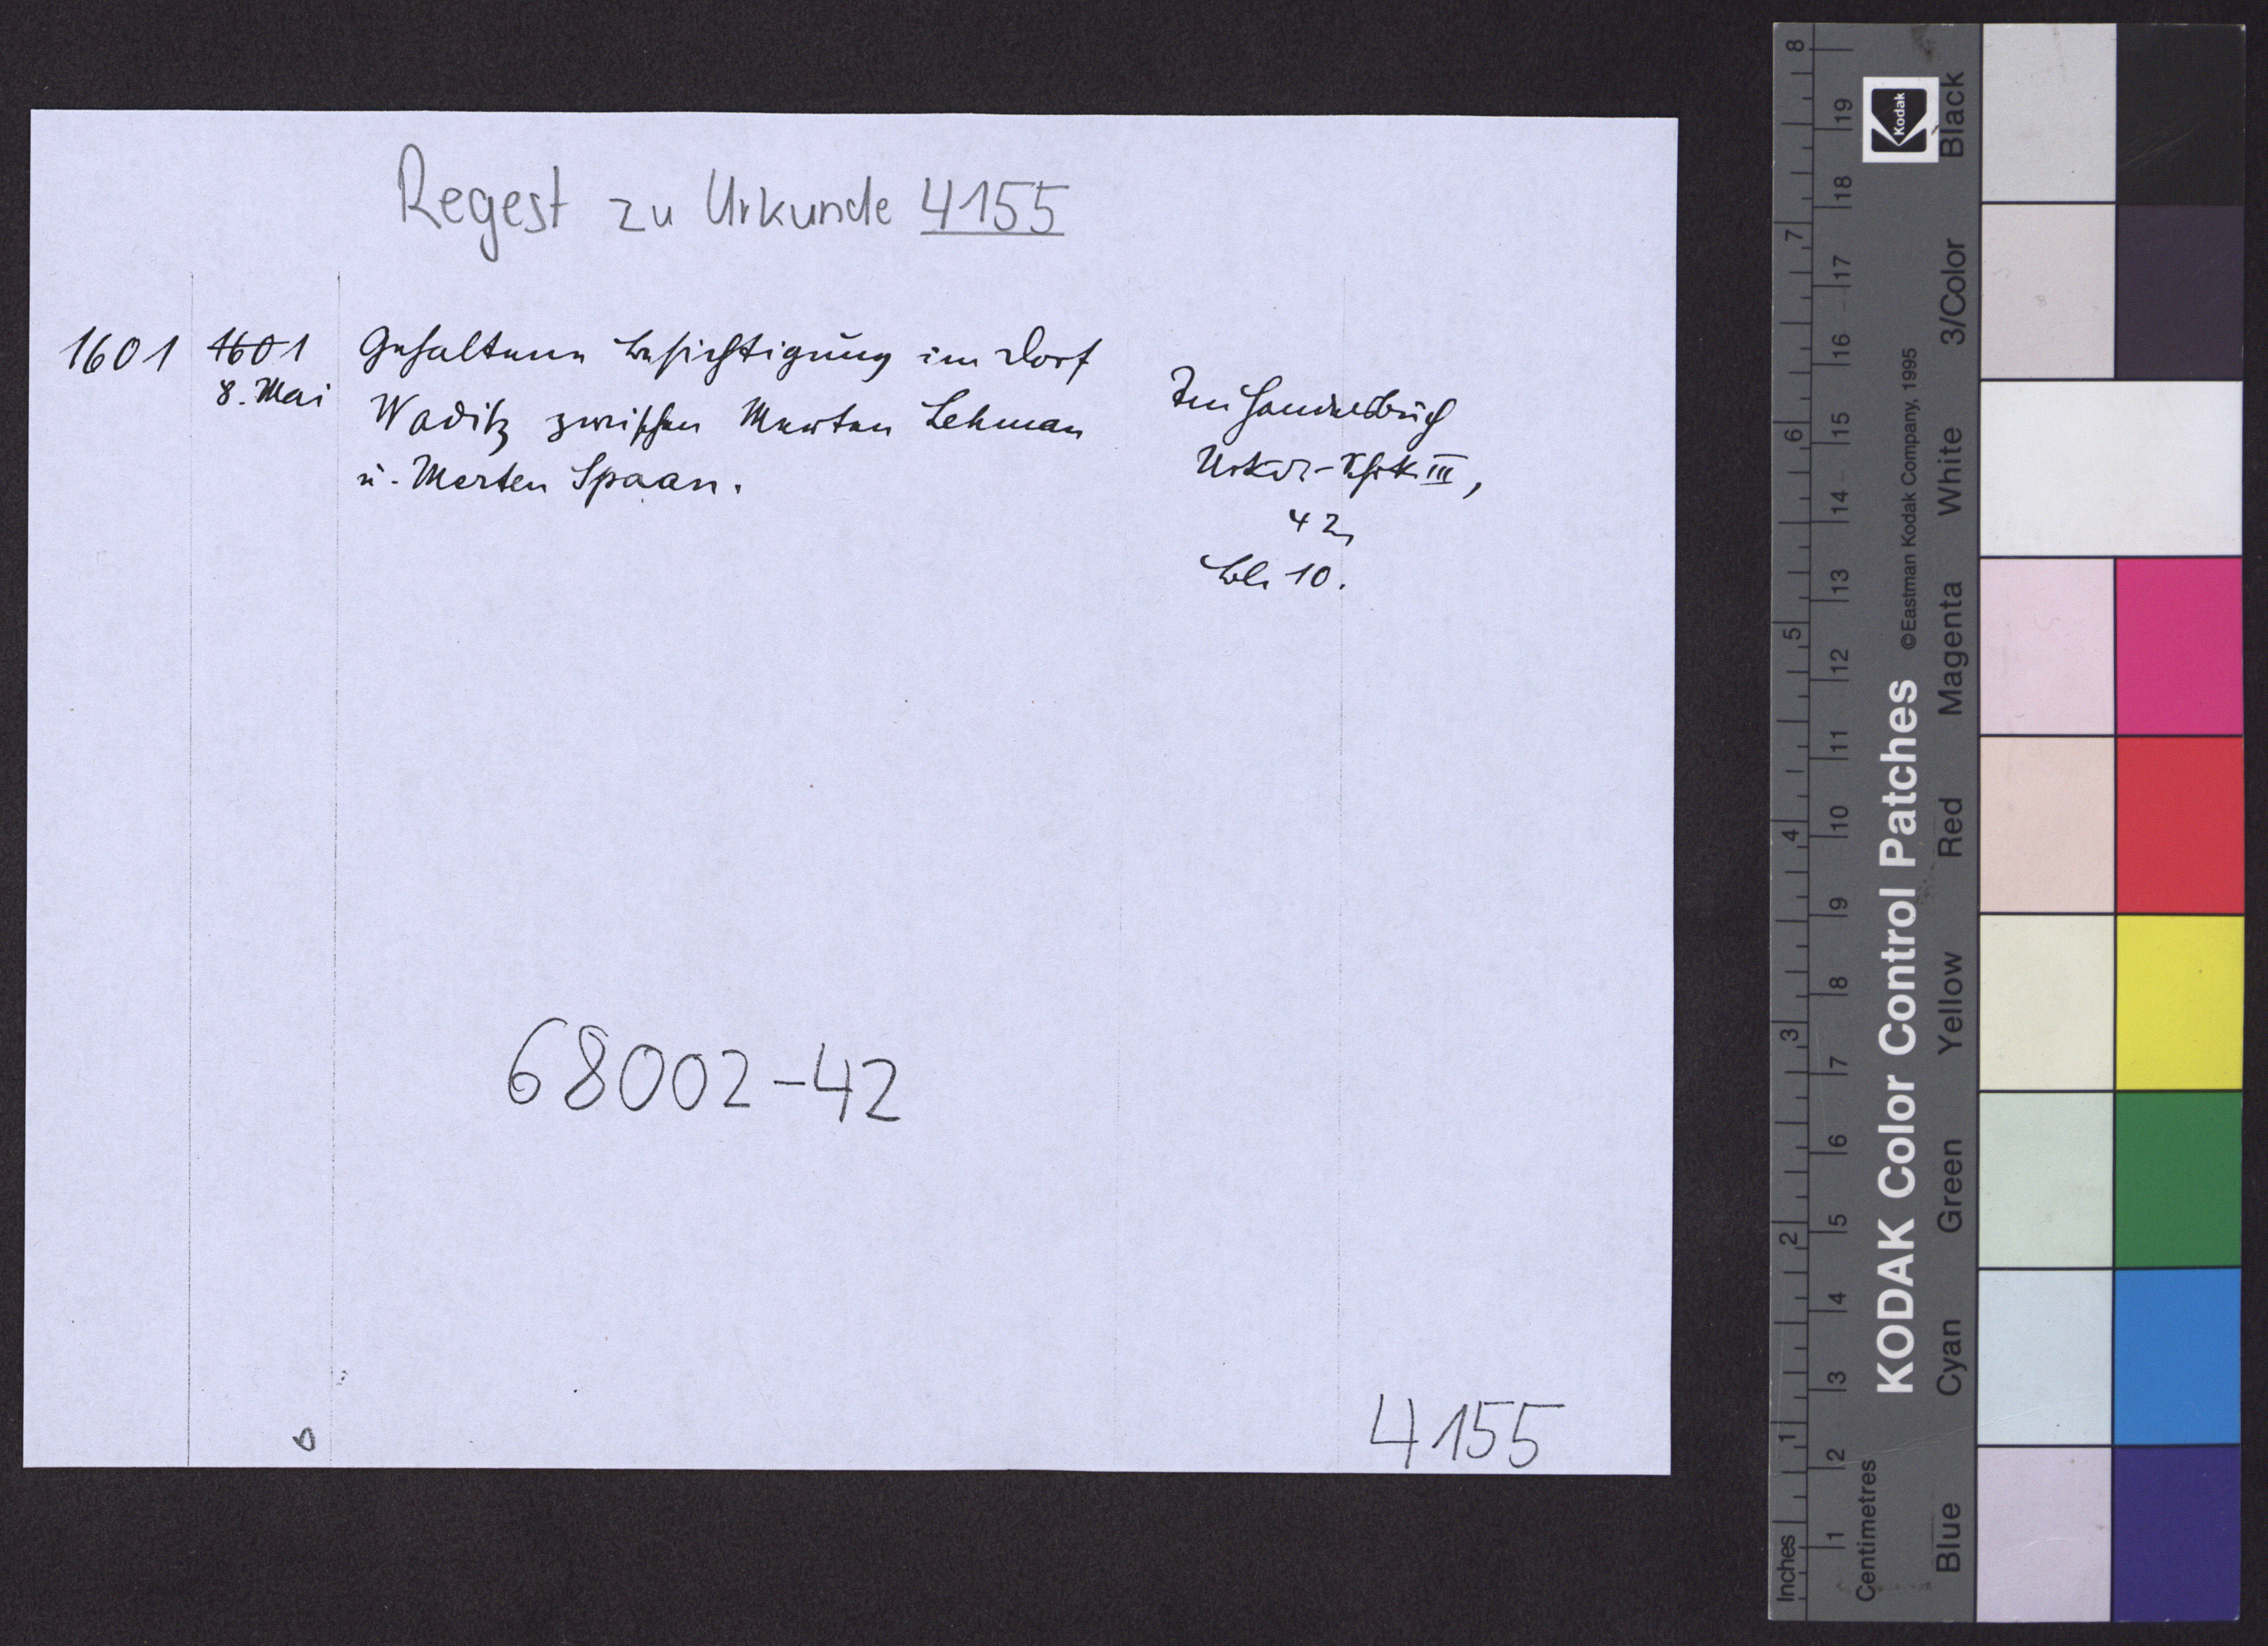 Regest zu Urkunde 4155
1601
1601
8. Mai
Gehaltene Besichtigung im Dorf
Waditz zwischen Merten Lehman
u. Merten Spaan.
Im Handelsbuch
III,
42,
Bl. 10.
68002-42
4155
Kodak
KODAK Color Control Patches ©Eastman Kodak Company, 1995
Blue Cyan Green Yellow Red Magenta White 3/Color Black
Inches 1 2 3 4 5 6 7 8
Centimetres 1 2 3 4 5 6 7 8 9 10 11 12 13 14 15 16 17 18 19